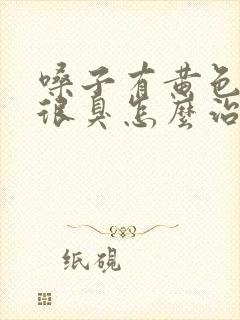 嗓子有黄色
很臭怎麼治
纸砚